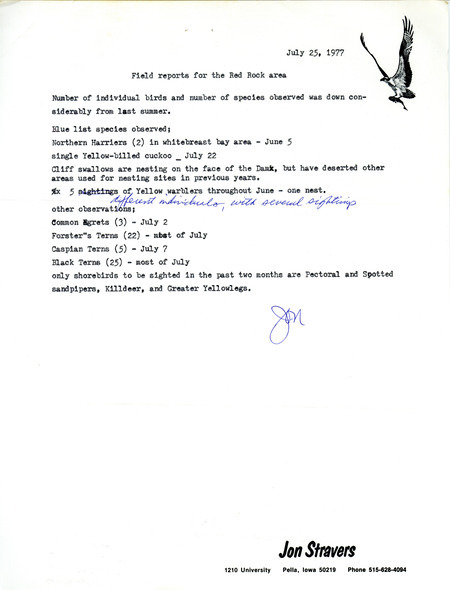 July 25, 1977
Field reports for the Red Rock area
Number of individual birds and number of species observed was down con-
siderably from last summer.
Blue list species observed;
Northern Harriers (2) in whitebreast bay area - June 5
single Yellow-billed cuckoo _ July 22
Cliff swallows are nesting on the face of the Damk, but have deserted other
areas used for nesting sites in previous years.
5 sightings of Yellow warblers throughout June - one nest.
different individuals, with several sightings
other observations;
Common Egrets (3) - July 2
Forster"s Terns (22) - most of July
Caspian Terns (5) - July 7
Black Terns (25) - most of July
only shorebirds to be sighted in the past two months are Pectoral and Spotted
sandpipers, Killdeer, and Greater Yellowlegs.
Jon
Jon Stravers
1210 University Pella, Iowa 50219 Phone 515-628-4094